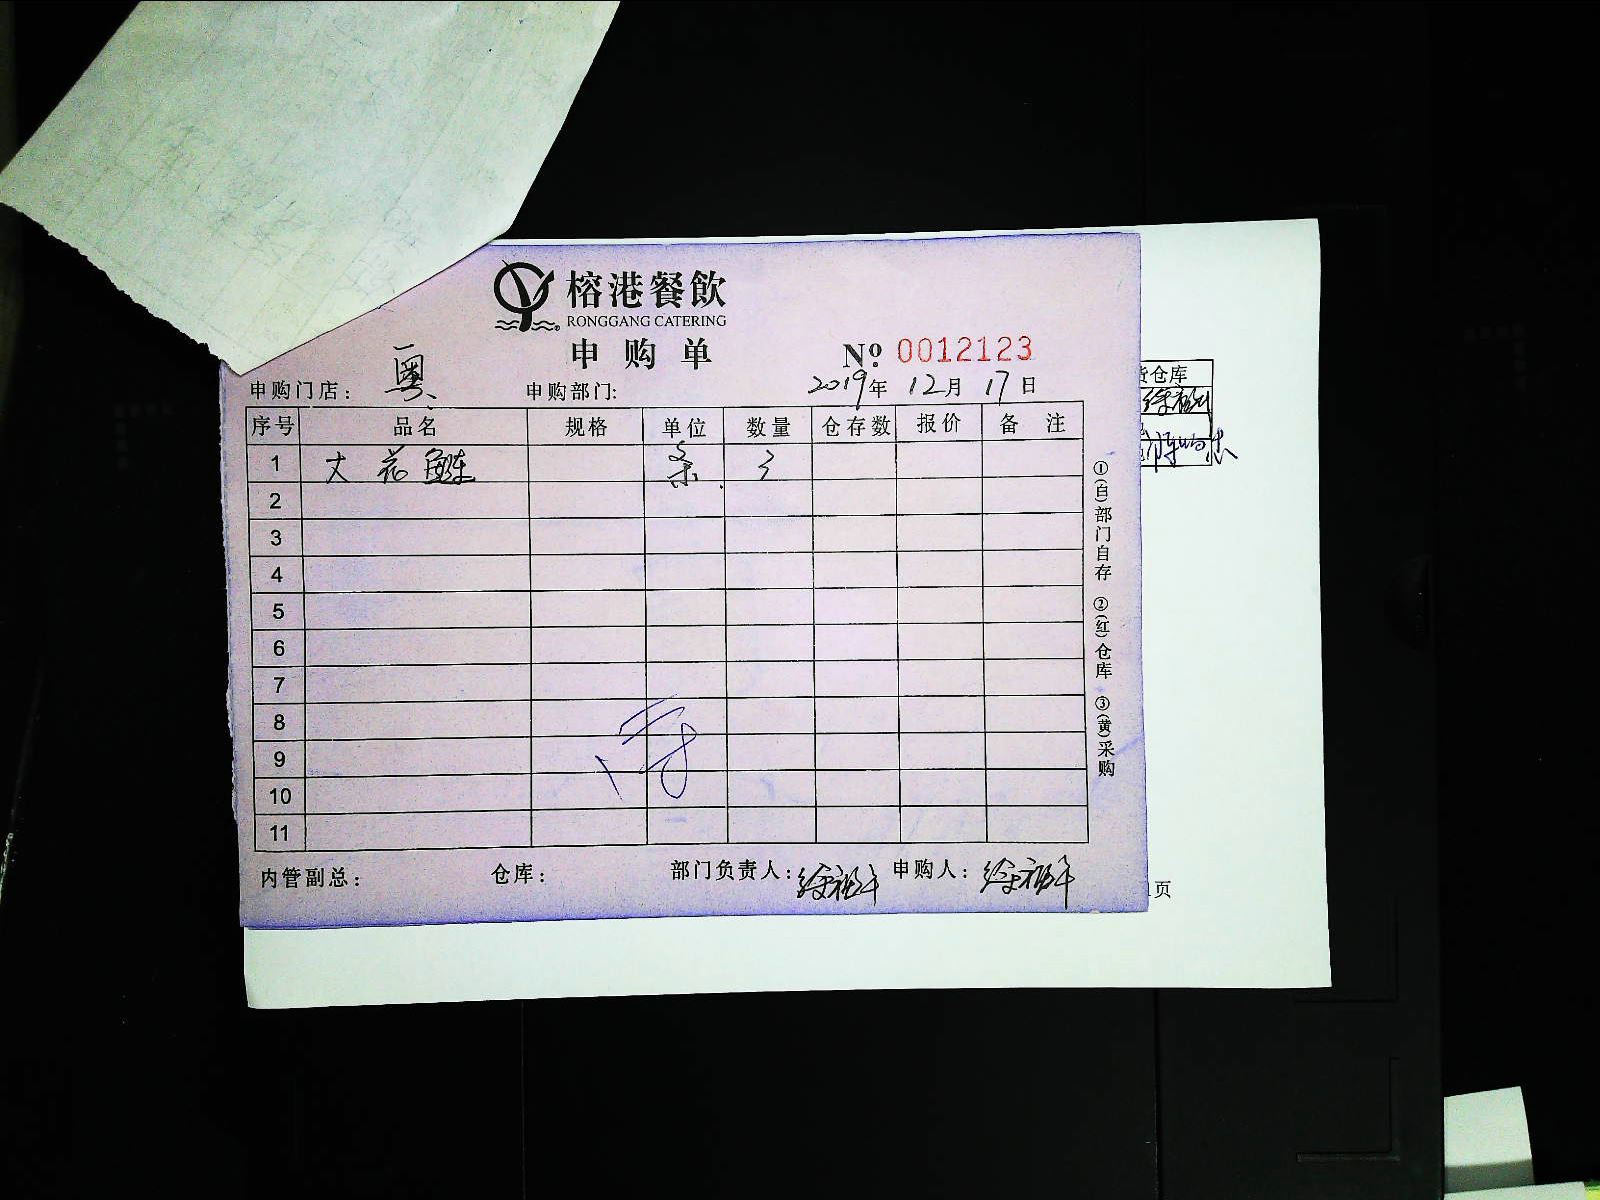 榕港餐飲
RONGGANG CATERING
申购单
№ 0012123
申购门店：粤 申购部门: 2019年 12月 17日
序号 品名 规格 单位 数量 仓存数 报价 备注
1 大花鲢 条 3
2
3
4
5
6
7
8
9
10
11
内管副总： 仓库： 部门负责人： 申购人：
①(白)部门自存 ②(红)仓库 ③(黄)采购
货仓库
1页